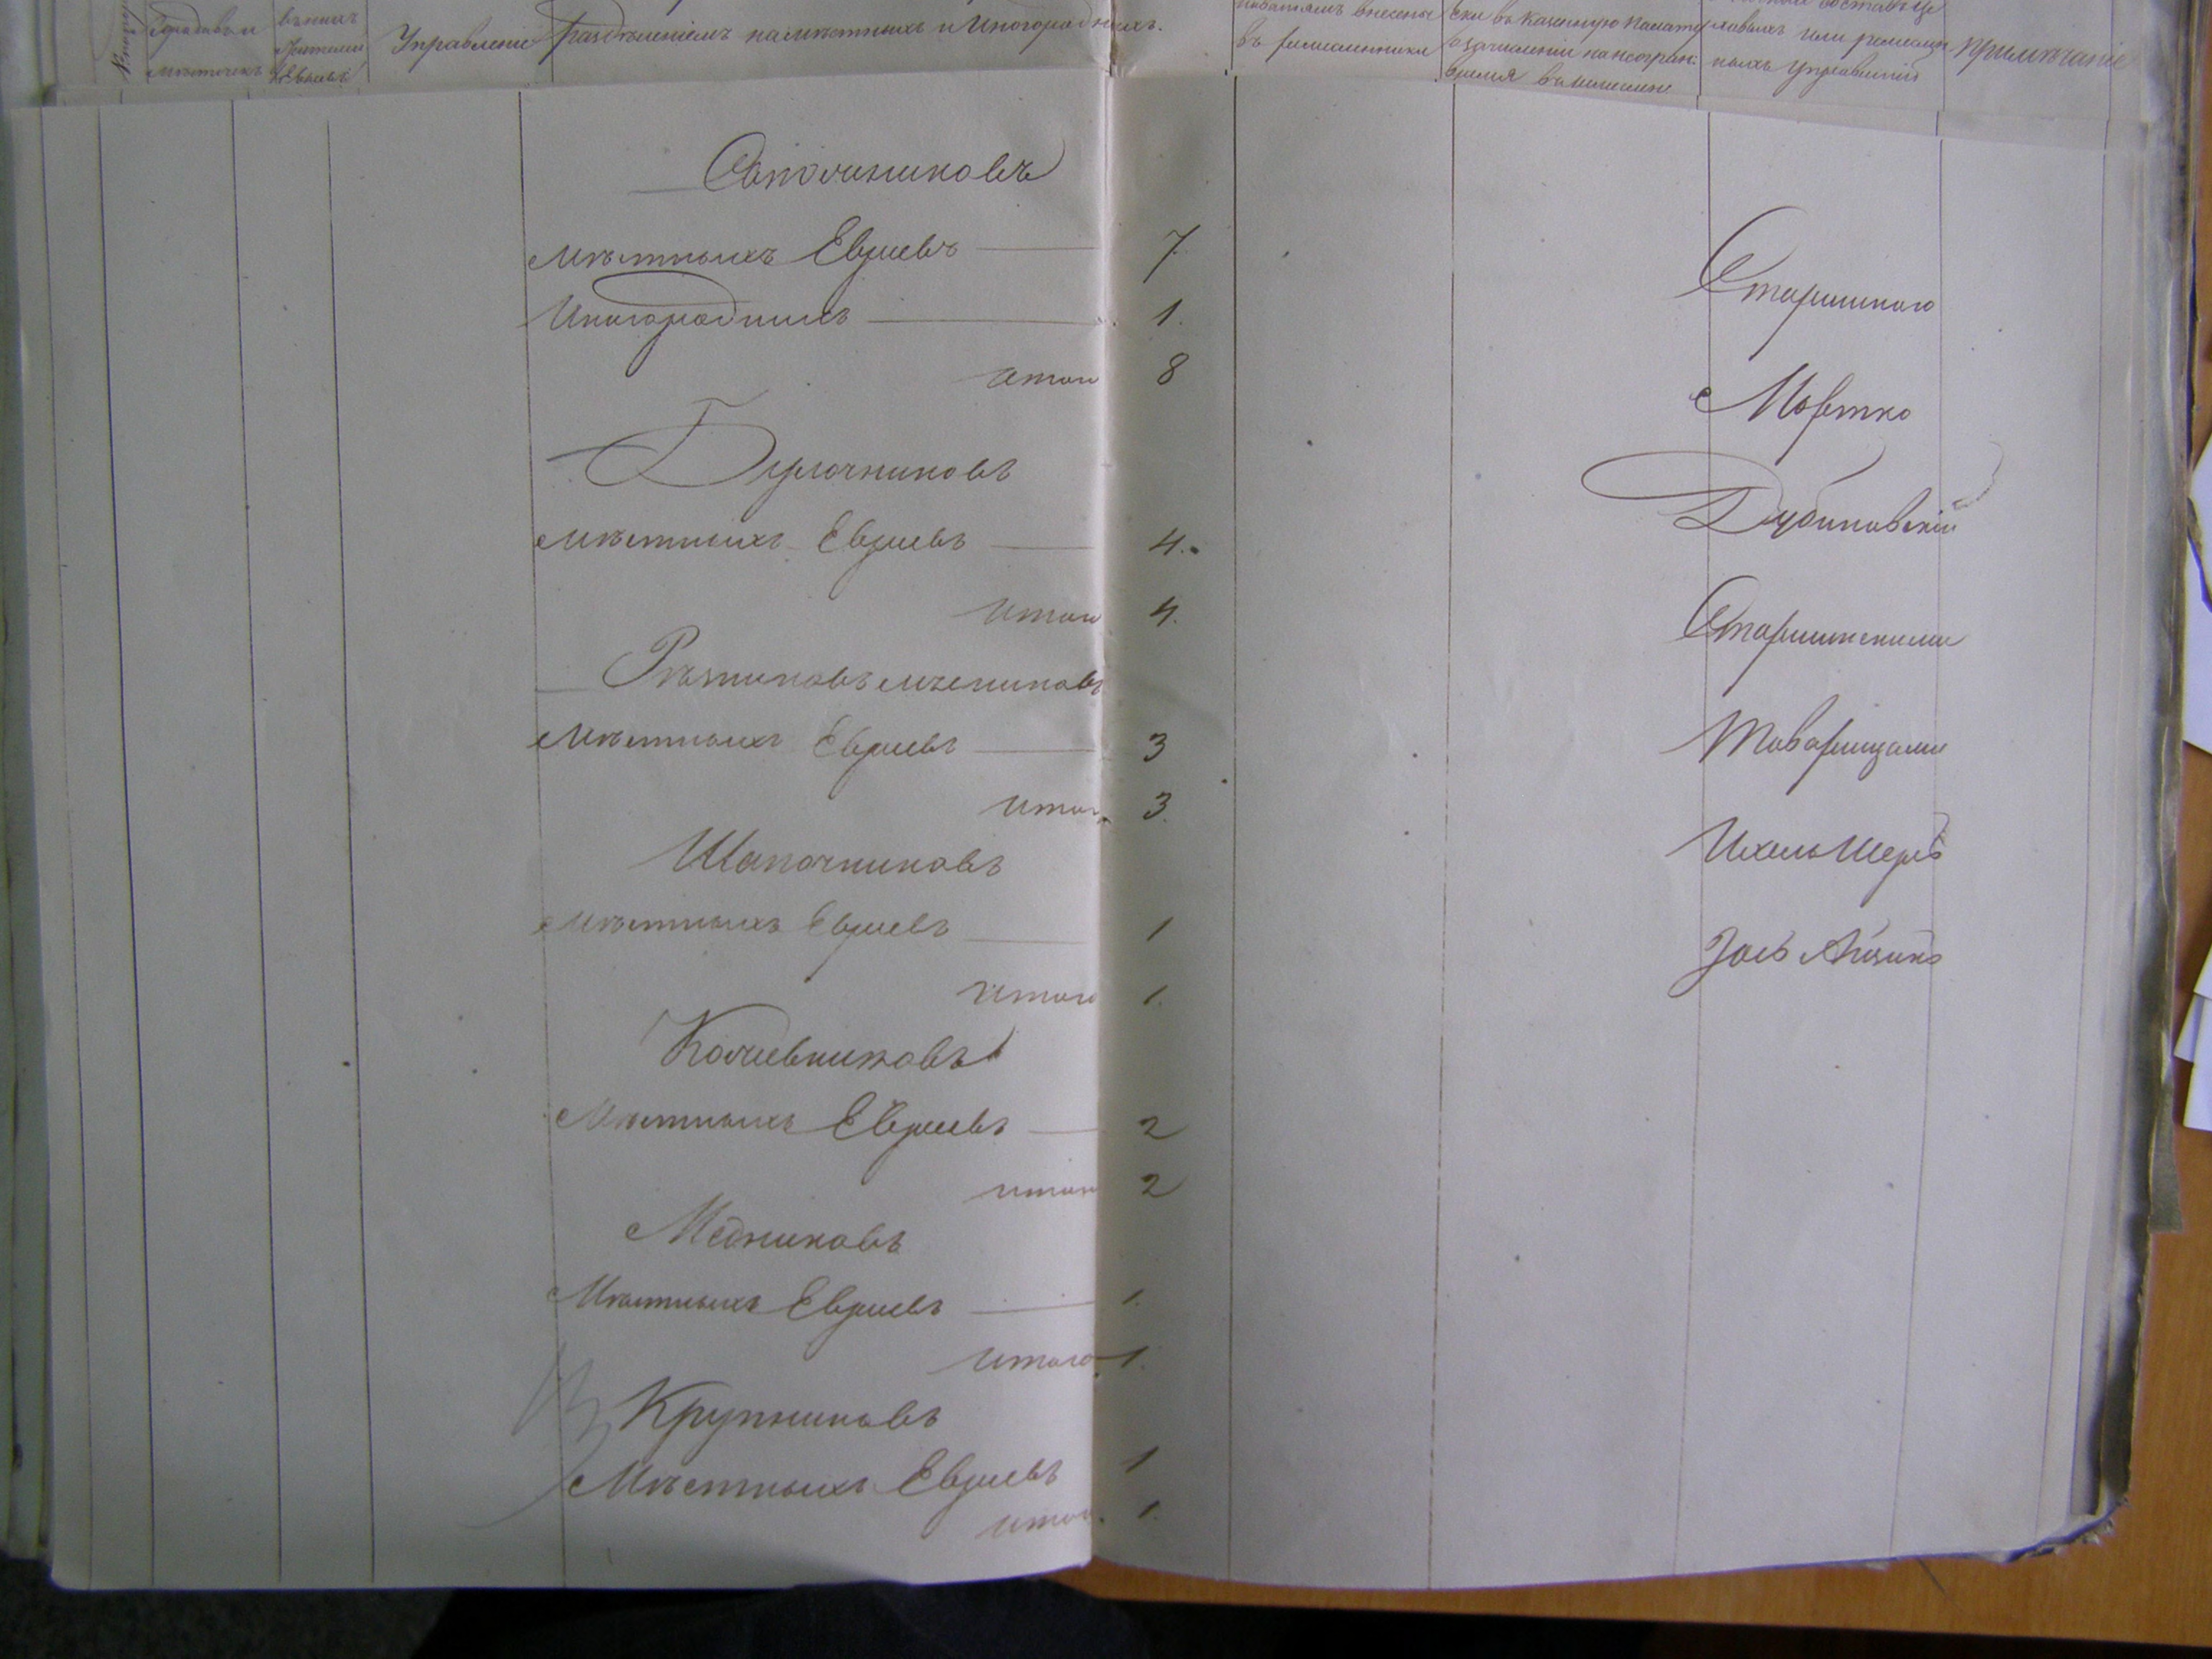 Управленіе
раздѣленіемъ на мѣстныхъ и иногороднихъ.
внесены
въ ремесленники
въ Казенную Палату
время
или
ныхъ Управленій
Примѣчаніе
Сапожниковъ
Мѣстныхъ Евреевъ 7.
Иногороднихъ 1.
Итого 8
Булочниковъ
Мѣстныхъ Евреевъ 4.
Итого 4.
Рѣзниковъ мясниковъ
Мѣстныхъ Евреевъ 3
Итого 3.
Шапочниковъ
Мѣстныхъ Евреевъ 1
Итого 1.
Кожевниковъ
Мѣстныхъ Евреевъ 2
Итого 2
Медниковъ
Мѣстныхъ Евреевъ 1.
Итого 1.
Крупниковъ
Мѣстныхъ Евреевъ 1
Итого 1.
Старшиною
Мортко
Дубиновскій
Старшинскими
Товарищами
Ихель Шеръ
Іось Айзикъ